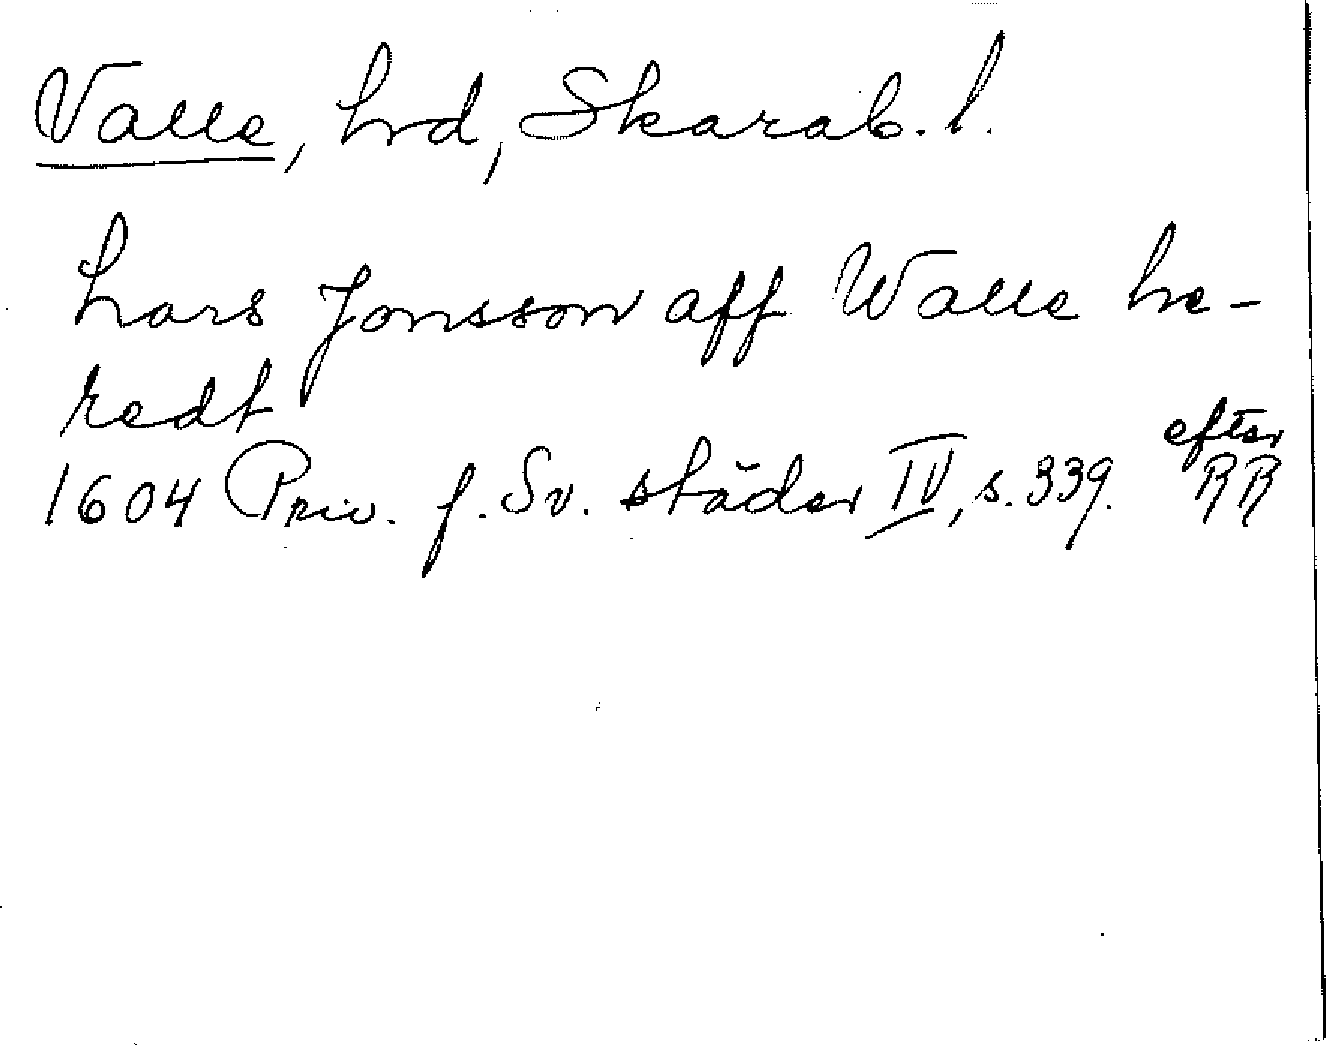 Valle, hrd, Skarab. l.
Lars Jonsson aff Walle he-
redt
1604 Priv. f. Sv. städer IV, s. 339. efter RR